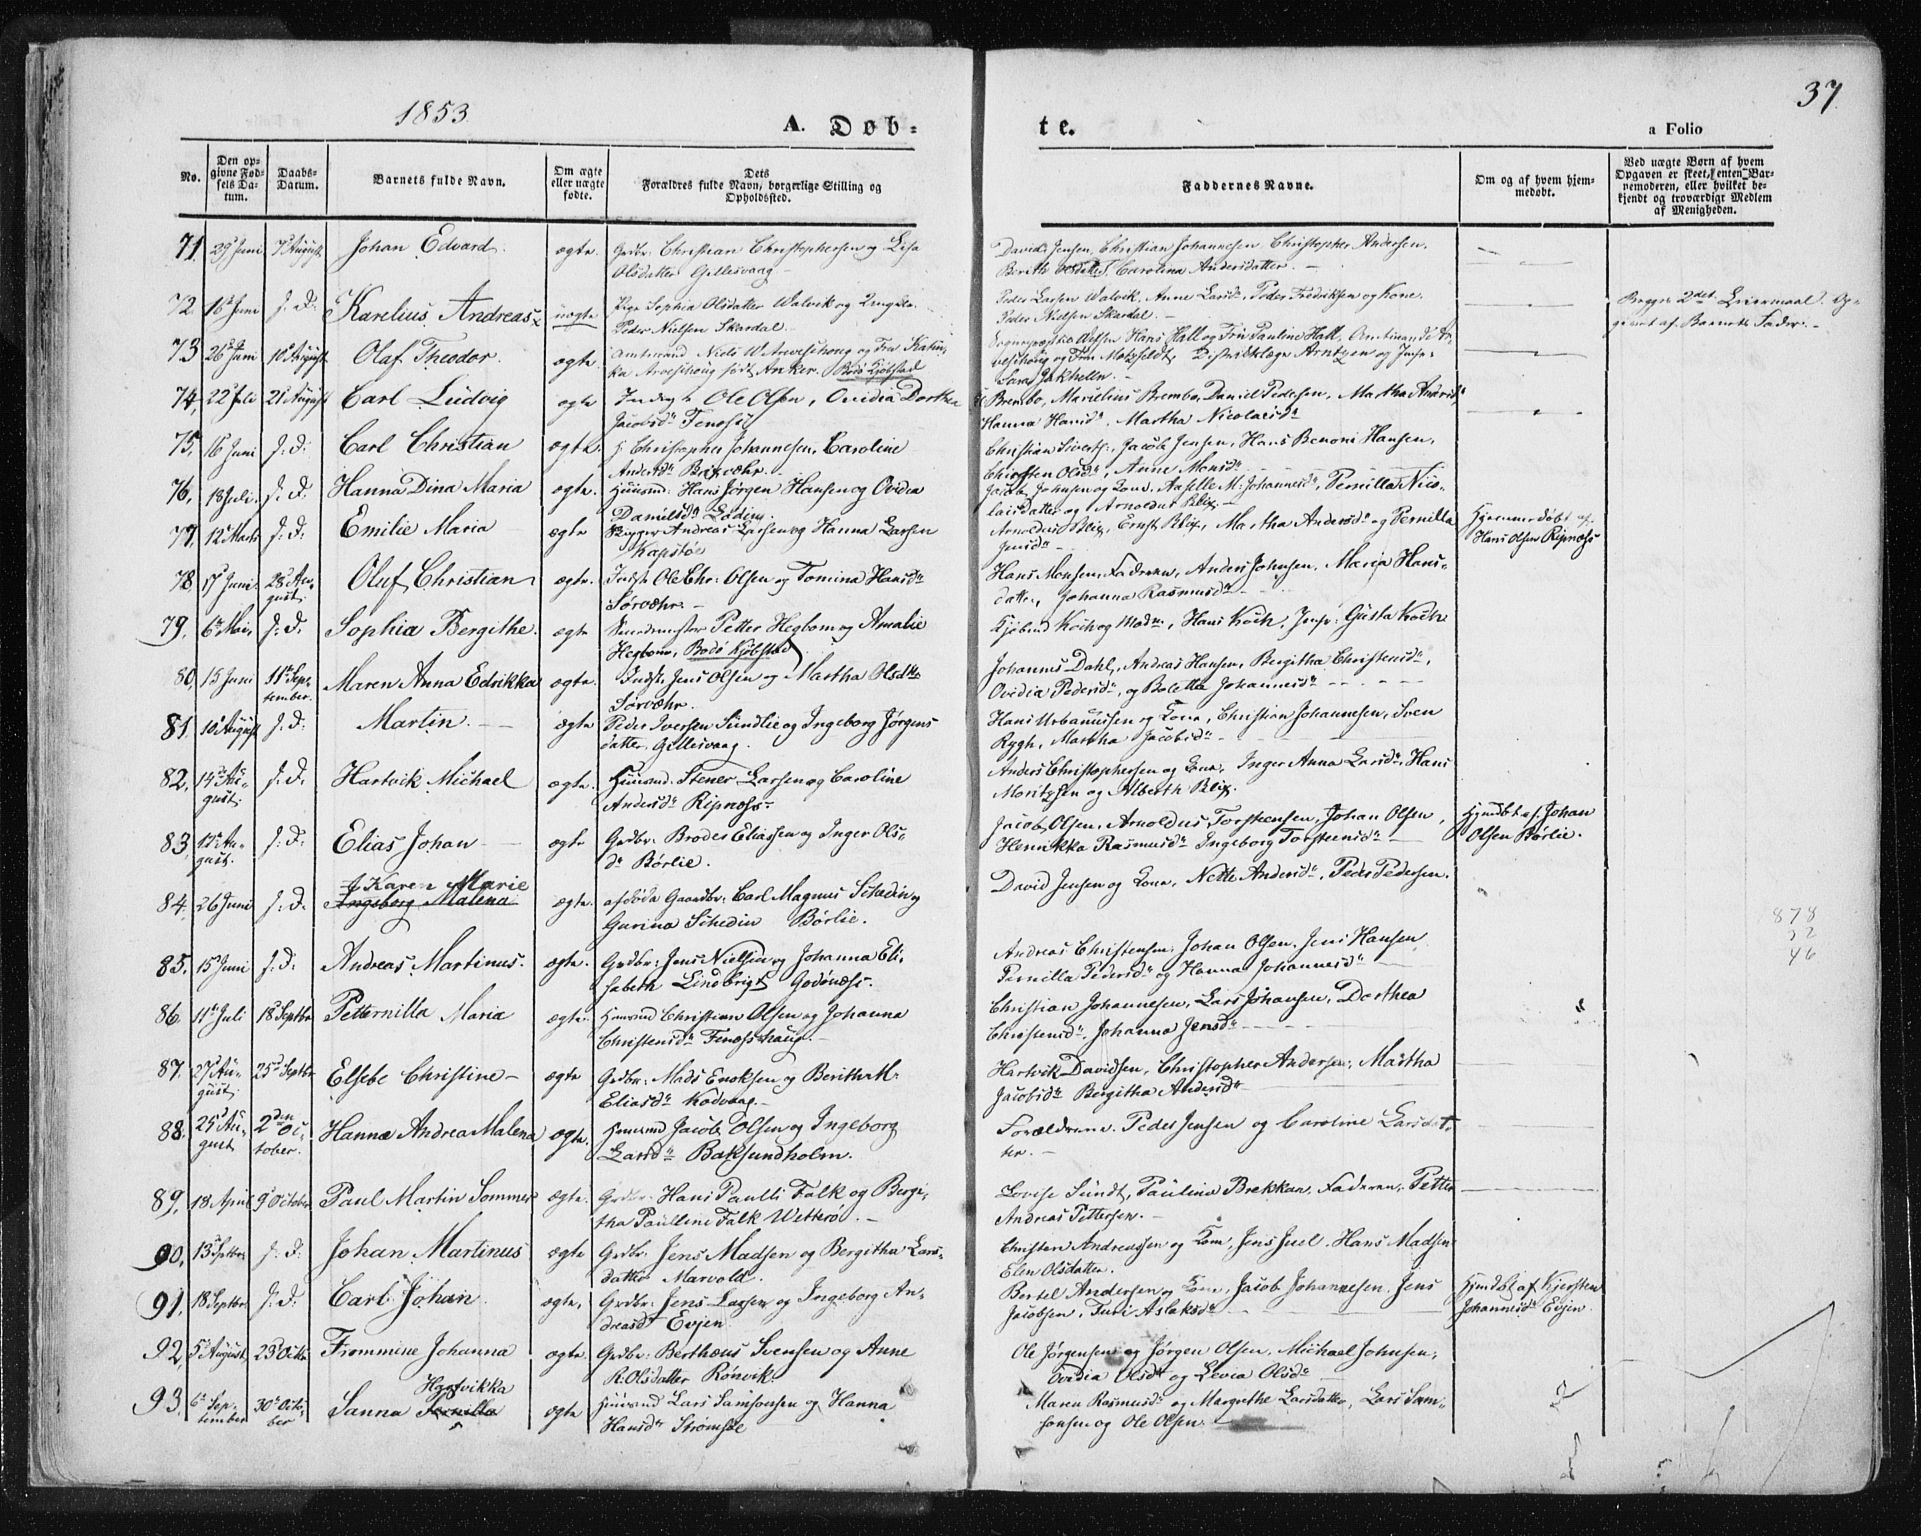 1853.
A. Døb=
te.
37.
a Folio
No.
Den op=
givne Fød=
sels Da=
tum.
Daabs=
Datum.
Barnets fulde Navn.
Om ægte
eller uægte
fødte.
Dets
Forældres fulde Navn, borgerlige Stilling og
Opholdssted.
Faddernes Navne.
Om og af hvem hjem=
medøbt.
Ved uægte Børn af hvem
Opgaven er skeet, enten Bar=
nemoderen, eller hvilket be=
kjendt og troværdigt Medlem
af Menigheden.
71. 29 Juni 7 August Johan Edvard. ægte. Grdbr. Christian Christophersen og Lisa
Olsdatter Gillesvaag
David Jensen, Christian Johannesen Christopher Andersen.
Berith Olsdatter. Carolina Andersdatter.
72. 16 Juni s. D. Karelius Andreas uægte Pige Sophia Olsdatter Walvik og Ungkar
Peder Nielsen Skardal.
Peder Larsen Walvik, Anne Larsd, Peder Fredriksen og Kone.
Peder Nielsen Skardal.
Begges 2det Leiermaal. Op=
givet af Barnets Fader.
73 26 Juni 10 August Olaf Theodor. ægte. Amtmand Niels W Arveschoug og Fru Katin=
ka Arveschoug født Anker. Bodø Kjøbstad
Hans Hall og Fru Pauline Hall, Amtmand Ar
veschoug og Fru Motzfeldt, Distriktslæge Arntzen og Jmfr
Sara Jakhelln.
74, 22 Juli 21 August Carl Ludvig ægte Inds Ole Olsen, Ovidia Dorthea
Jacobsdr Fenes
Brembo, Marielius Brembo, Daniel Pedersen, Martha
Hanna Hansdr, Martha Nicolaisdr
75, 16 Juni s. D. Carl Christian ægte. Christopher Johannesen, Caroline
Andersdr Bertnes
Christian Sivertsen, Jacob Jensen, Hans Benoni Hansen,
Olsdr, Anne Monsdr
76, 18 Juli s. D. Hanna Dina Maria ægte. Huusmd: Hans Jørgen Hansen og Ovidia
Danielsdr Løding.
Jacob Johnsen og Kone, M. Johannesdr, Pernilla Nico=
laisdatter og Arnoldus Blix
77, 12 Marts s. D. Emilie Maria ægte Bygger Andreas Larsen og Hanna Larsen
Kapstø
Arnoldus Blix, Ernst Blix, Martha Andersdr og Pernilla
Jensdr
Hjemmedøbt af
Hans Olsen Ripnæss
78. 17 Juni 28 Au=
gust. Oluf Christian ægte. Inds Ole Chr: Olsen og Tomina Hansdr
Sørvær.
Hans Monsen, Faderen, Anders Johnsen, Maria Hans=
datter, Johanna Rasmusdr
79. 6 Mai, s. D. Sophia Bergithe. ægte Petter Hegbom og Amalie
Hegbom, Bodø Kjøbstad
Kjøbmd Koch og Mad, Hans Koch, Jmfr: Gusta Koch
80, 15 Juni 11 Sep=
tember. Maren Anna Edrikka ægte. Inds. Jens Olsen og Martha Olsdtr
Sørvær.
Johannes Dahl, Andreas Hansen, Bergitha Christensdr,
Ovidia Pedersdr, og Boletta Johannesdr
81. 10 August s. D. Martin. ægte Peder Iversen Sundlie og Ingeborg Jørgens
datter, Gillesvaag.
Hans Urbanussen og Kone, Christian Johannesen, Sven
Rygh, Martha Jacobsdr
82, 14 Au=
gust. s. D. Hartvik Michael ægte. Huusmd: Stener Larsen og Caroline
Andersdr Ripnæss
Anders Christophersen og Kone, Inger Anna Larsdr, Hans
Moritzsen og Alberth Blix.
83, 12 Au=
gust. s. D. Elias Johan ægte Grdbr: Brodes Eliassen og Inger Ols=
dr Børlie.
Jacob Olsen, Arnoldus Torstensen, Johan Olsen,
Henrikka Rasmusdr Ingeborg Torstensdr
Hjmdbt af Johan
Olsen Børlie.
84. 26 Juni s. D. Karen Marie
Ingeborg Malena ægte. afdøde Gaardbr: Carl Magnus Schedin og
Gurina Schedin Børlie.
David Jensen og Kone, Nette Andersdr, Peder Pedersen.
878
32
46
85. 15 Juni s. D. Andreas Martinus. ægte. Grdbr: Jens Nielsen og Johanna Eli=
sabeth Lindbrigt Godønæss.
Andreas Christensen, Johan Olsen, Jens Hansen
Pernilla Pedersdr og Hanna Johannesdr
86. 11 Juli 18 Septbr Petternilla Maria ægte. Huusmd Christian Olsen og Johanna
Christensdr Fenæsshaug.
Christian Johannesen, Lars Johansen, Dorthea
Christensdr, Johanna Jensdr
87. 27 Au=
gust. 25 Septbr Elsebe Christine ægte Grdbr: Mads Enoksen og Berith M.
Eliasdr Kodvaag.
Hartvik Davidsen, Christopher Andersen, Martha
Jacobsdr Bergitha Andersdr
88. 25 Au=
gust 2den Oc=
tober. Hanna Andrea Malena ægte. Huusmd Jacob Olsen og Ingeborg
Larsdr Baksundholm.
Forældrene. Peder Jensen og Caroline Larsdat=
ter.
89, 18 April 9 October Paul Martin Sommer ægte. Grdbr: Hans Paulli Falk og Bergi=
tha Paulline Falk Wetterø.
Lovise Sundt, Paulina Brekkan, Faderen, Petter
Andreas Pettersen.
90, 13 Septbr s. D. Johan Martinus ægte Grdbr: Jens Madsen og Bergitha Lars=
datter Marvold.
Christen Andreassen og Kone, Jens Juel, Hans Madsen
Elen Olsdatter.
91, 18 Septbr s. D. Carl Johan. ægte, Grdbr: Jens Larsen og Ingeborg An=
dreasdr Evjen.
Bertel Andersen og Kone, Jacob Johannesen, Jens
Jacobsen, Aslaksdr
Hjmdbt af Kjersten
Johannesdr Evjen.
92, 5 August 23 Octbr Frommine Johanna ægte. Grdbr: Berthæus Svensen og Anne
R. Olsdatter Rønvik.
Ole Jørgensen og Jørgen Olsen, Michael Johnsen,
Ovidia Olsdr og Levia Olsdr
93. 6 Sep=
tember 30 Octo=
ber Sanna Hartvikka
Pernilla ægte Huusmd Lars Samsonsen og Hanna
Hansdr Strømsøe
Maren Rasmusdr og Margrethe Larsdatter, Lars Sam=
sonsen og Ole Olsen.